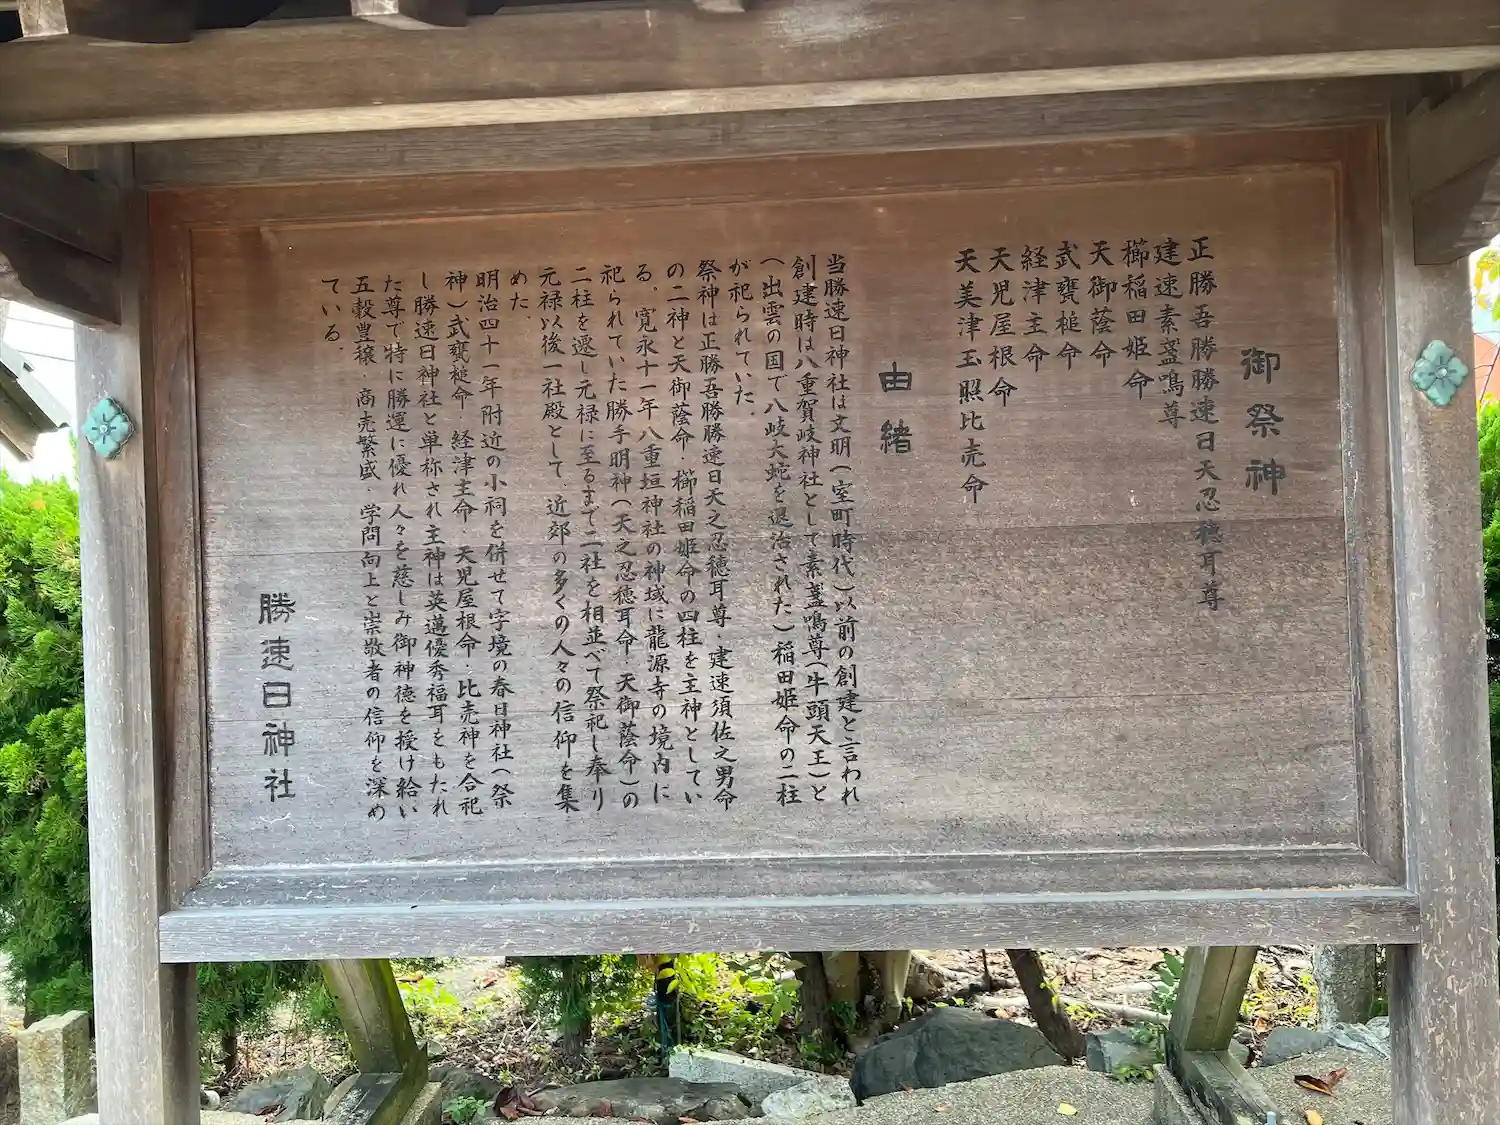 御祭神
正勝吾勝勝速日天忍穂耳尊
建速素盞鳴尊
櫛稲田姫命
天御蔭命
武甕槌命
経津主命
天児屋根命
天美津玉照比売命
由緒
当勝速日神社は文明(室町時代)以前の創建と言われ
創建時は八重賀岐神社として素盞鳴尊(牛頭天王)と
(出雲の国で八岐大蛇を退治された)稲田姫命の二柱
が祀られていた.
祭神は正勝吾勝勝速日天之忍穂耳尊.建速須佐之男命
の二神と天御蔭命.櫛稲田姫命の四柱を主神としてい
る.寛永十一年八重垣神社の神域に龍源寺の境内に
祀られていた勝手明神(天之忍穂耳命.天御蔭命)の
二柱を遷し元禄に至るまで二社を相並べて祭祀し奉り
元禄以後一社殿として.近郊の多くの人々の信仰を集
めた.
明治四十一年附近の小祠を併せて字境の春日神社(祭
神)武甕槌命.経津主命.天児屋根命.比売神を合祀
し勝速日神社と単称され主神は英邁優秀福耳をもたれ
た尊で特に勝運に優れ人々を慈しみ御神徳を授け給い
五穀豊穣.商売繁盛.学問向上と崇敬者の信仰を深め
ている.
勝速日神社